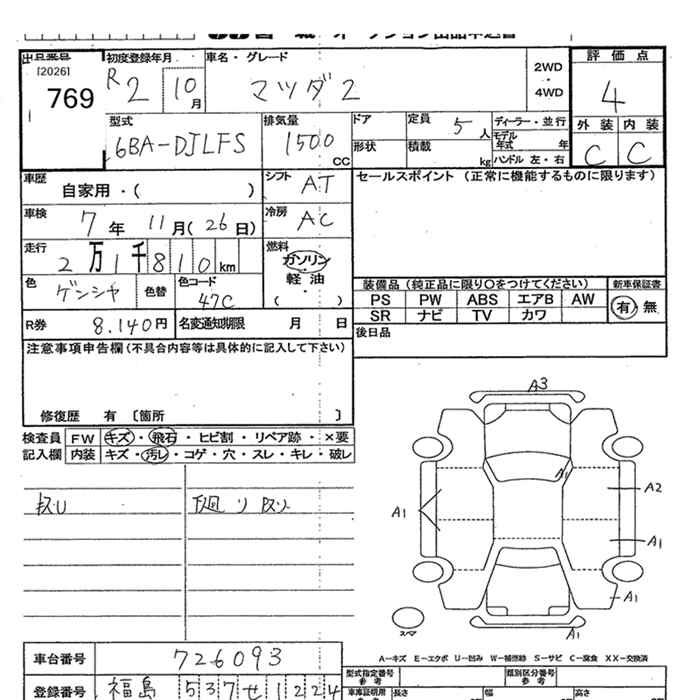 出品番号 初度登録年月 車名・グレード 評価点
[2026]
769 R2 10月 マツダ2 2WD・4WD 4
型式 排気量 ドア 定員 5人 ディーラー・並行 外装 内装
6BA-DJLFS 1500CC 形状 積載 kg モデル年式 年 C C
ハンドル 左・右
車歴 自家用・( ) シフト AT セールスポイント (正常に機能するものに限ります)
車検 7年 11月(26日) 冷房 AC
走行 2万1千810km 燃料 ガソリン
軽油
( ・ )
色 ゲンシャ 色替 色コード 47C 装備品 (純正品に限り〇をつけてください) 新車保証書
PS PW ABS エアB AW 有 無
SR ナビ TV カワ
R券 8.140円 名変通知期限 月 日 後日品
注意事項申告欄(不具合内容等は具体的に記入して下さい)
修復歴 有 〔箇所 〕
検査員 FW キズ・飛石・ヒビ割・リペア跡・×要
記入欄 内装 キズ・汚レ・コゲ・穴・スレ・キレ・破レ
A3
A1
A1
A2
A1
A1
A1
スマ
A―キズ E―エクボ U―凹み W―補修跡 S―サビ C―腐食 XX―交換済
車台番号 726093
型式指定番号 参考 類別区分番号 参考
登録番号 福島 537せ1224
車庫証明用 長さ 幅 高さ